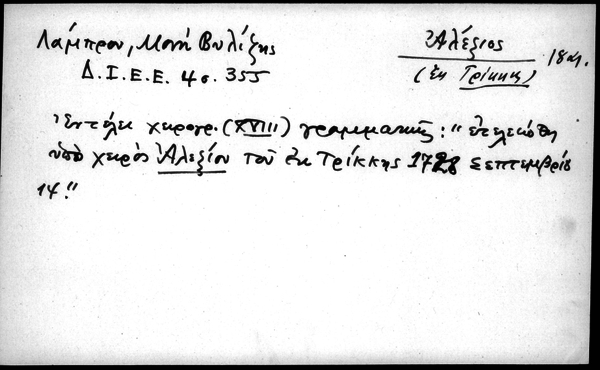 Λάμπρου, Μονή Βυλίζης
Δ.Ι.Ε.Ε. 4 σ. 355
Ἀλέξιος
(ἐκ Τρίκκης)
Ἐν τέλει χειρογρ. (XVIII) γραμματικῆς: "ἐτελειώθη
ὑπὸ χειρὸς Ἀλεξίου τοῦ ἐκ Τρίκκης 1728 Σεπτεμβρίῳ
14."